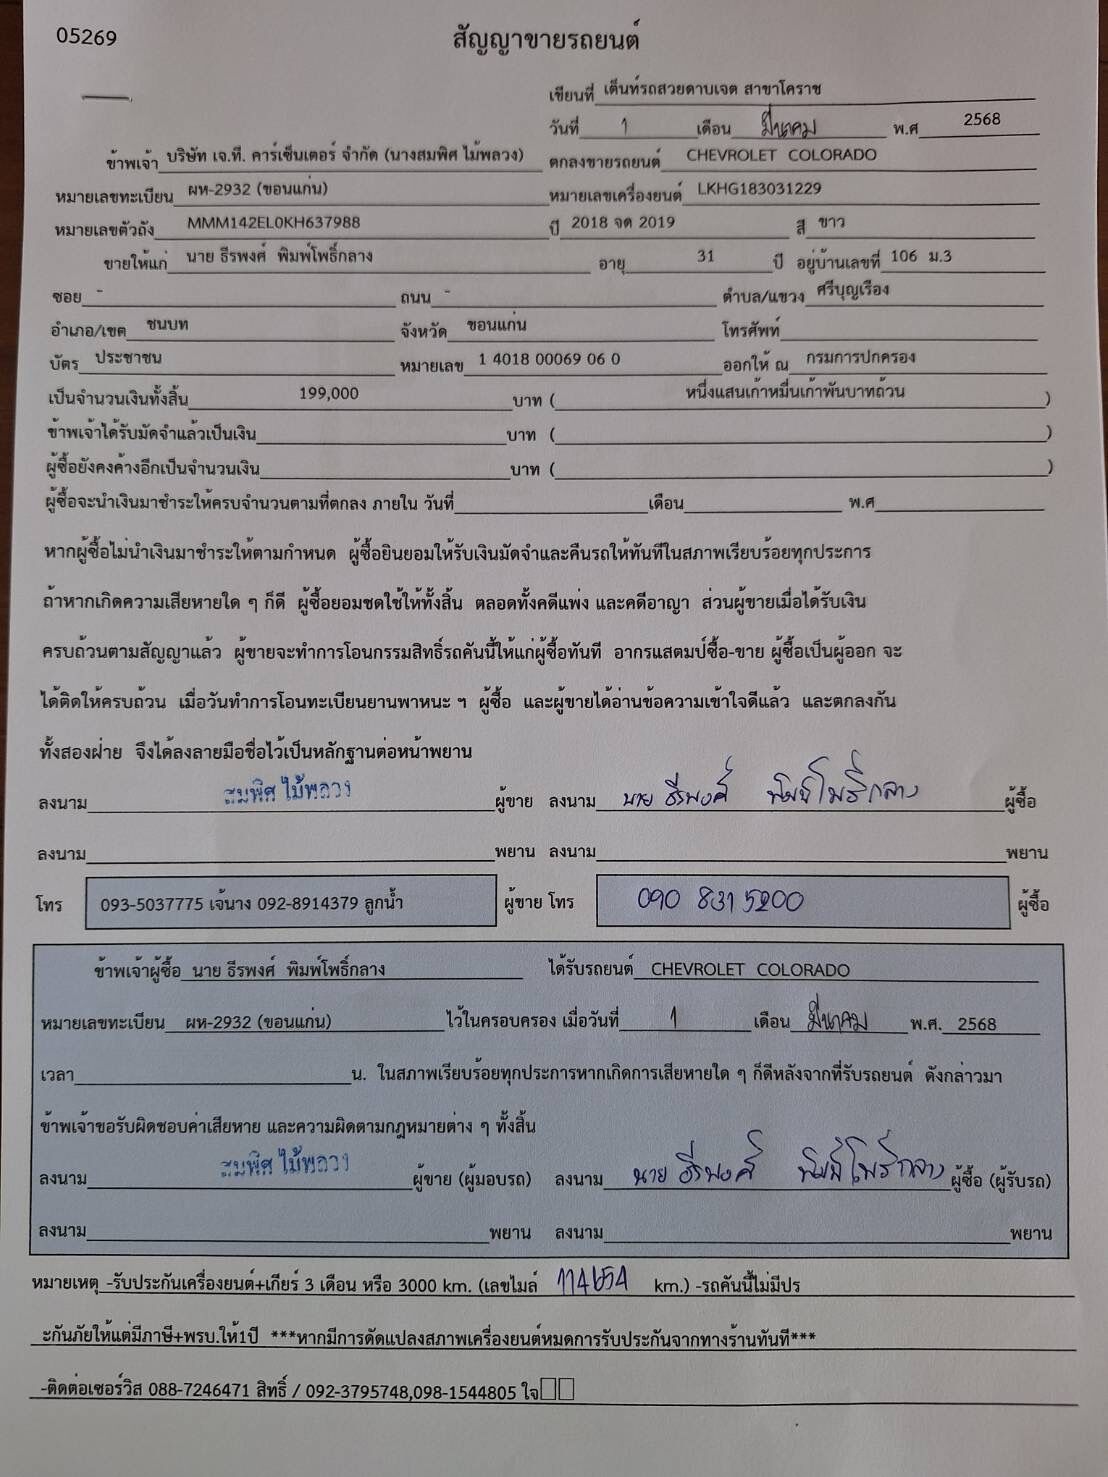 05269
สัญญาขายรถยนต์
เขียนที่ เต็นท์รถสวยดาบเจต สาขาโคราช
วันที่ 1 เดือน มีนาคม พ.ศ 2568
ข้าพเจ้า บริษัท เจ.ที. คาร์เซ็นเตอร์ จำกัด (นางสมพิศ ไม้พลวง) ตกลงขายรถยนต์ CHEVROLET COLORADO
หมายเลขทะเบียน ผห-2932 (ขอนแก่น) หมายเลขเครื่องยนต์ LKHG183031229
หมายเลขตัวถัง MMM142EL0KH637988 ปี 2018 จด 2019 สี ขาว
ขายให้แก่ นาย ธีรพงศ์ พิมพ์โพธิ์กลาง อายุ 31 ปี อยู่บ้านเลขที่ 106 ม.3
ซอย - ถนน - ตำบล/แขวง ศรีบุญเรือง
อำเภอ/เขต ชนบท จังหวัด ขอนแก่น โทรศัพท์
บัตร ประชาชน หมายเลข 1 4018 00069 06 0 ออกให้ ณ กรมการปกครอง
เป็นจำนวนเงินทั้งสิ้น 199,000 บาท ( หนึ่งแสนเก้าหมื่นเก้าพันบาทถ้วน )
ข้าพเจ้าได้รับมัดจำแล้วเป็นเงิน บาท ( )
ผู้ซื้อยังคงค้างอีกเป็นจำนวนเงิน บาท ( )
ผู้ซื้อจะนำเงินมาชำระให้ครบจำนวนตามที่ตกลง ภายใน วันที่ เดือน พ.ศ
หากผู้ซื้อไม่นำเงินมาชำระให้ตามกำหนด ผู้ซื้อยินยอมให้รับเงินมัดจำและคืนรถให้ทันทีในสภาพเรียบร้อยทุกประการ
ถ้าหากเกิดความเสียหายใด ๆ ก็ดี ผู้ซื้อยอมชดใช้ให้ทั้งสิ้น ตลอดทั้งคดีแพ่ง และคดีอาญา ส่วนผู้ขายเมื่อได้รับเงิน
ครบถ้วนตามสัญญาแล้ว ผู้ขายจะทำการโอนกรรมสิทธิ์รถคันนี้ให้แก่ผู้ซื้อทันที อากรแสตมป์ซื้อ-ขาย ผู้ซื้อเป็นผู้ออก จะ
ได้ติดให้ครบถ้วน เมื่อวันทำการโอนทะเบียนยานพาหนะ ฯ ผู้ซื้อ และผู้ขายได้อ่านข้อความเข้าใจดีแล้ว และตกลงกัน
ทั้งสองฝ่าย จึงได้ลงลายมือชื่อไว้เป็นหลักฐานต่อหน้าพยาน
ลงนาม สมพิศ ไม้พลวง ผู้ขาย ลงนาม นาย ธีรพงศ์ พิมพ์โพธิ์กลาง ผู้ซื้อ
ลงนาม พยาน ลงนาม พยาน
โทร 093-5037775 เจ้นาง 092-8914379 ลูกน้ำ ผู้ขาย โทร 090 8315200 ผู้ซื้อ
ข้าพเจ้าผู้ซื้อ นาย ธีรพงศ์ พิมพ์โพธิ์กลาง ได้รับรถยนต์ CHEVROLET COLORADO
หมายเลขทะเบียน ผห-2932 (ขอนแก่น) ไว้ในครอบครอง เมื่อวันที่ 1 เดือน มีนาคม พ.ศ. 2568
เวลา น. ในสภาพเรียบร้อยทุกประการหากเกิดการเสียหายใด ๆ ก็ดีหลังจากที่รับรถยนต์ ดังกล่าวมา
ข้าพเจ้าขอรับผิดชอบค่าเสียหาย และความผิดตามกฎหมายต่าง ๆ ทั้งสิ้น
ลงนาม สมพิศ ไม้พลวง ผู้ขาย (ผู้มอบรถ) ลงนาม นาย ธีรพงศ์ พิมพ์โพธิ์กลาง ผู้ซื้อ (ผู้รับรถ)
ลงนาม พยาน ลงนาม พยาน
หมายเหตุ -รับประกันเครื่องยนต์+เกียร์ 3 เดือน หรือ 3000 km. (เลขไมล์ km.) -รถคันนี้ไม่มีปร
ะกันภัยให้แต่มีภาษี+พรบ.ให้1ปี ***หากมีการดัดแปลงสภาพเครื่องยนต์หมดการรับประกันจากทางร้านทันที***
-ติดต่อเซอร์วิส 088-7246471 สิทธิ์ / 092-3795748,098-1544805 ใจ